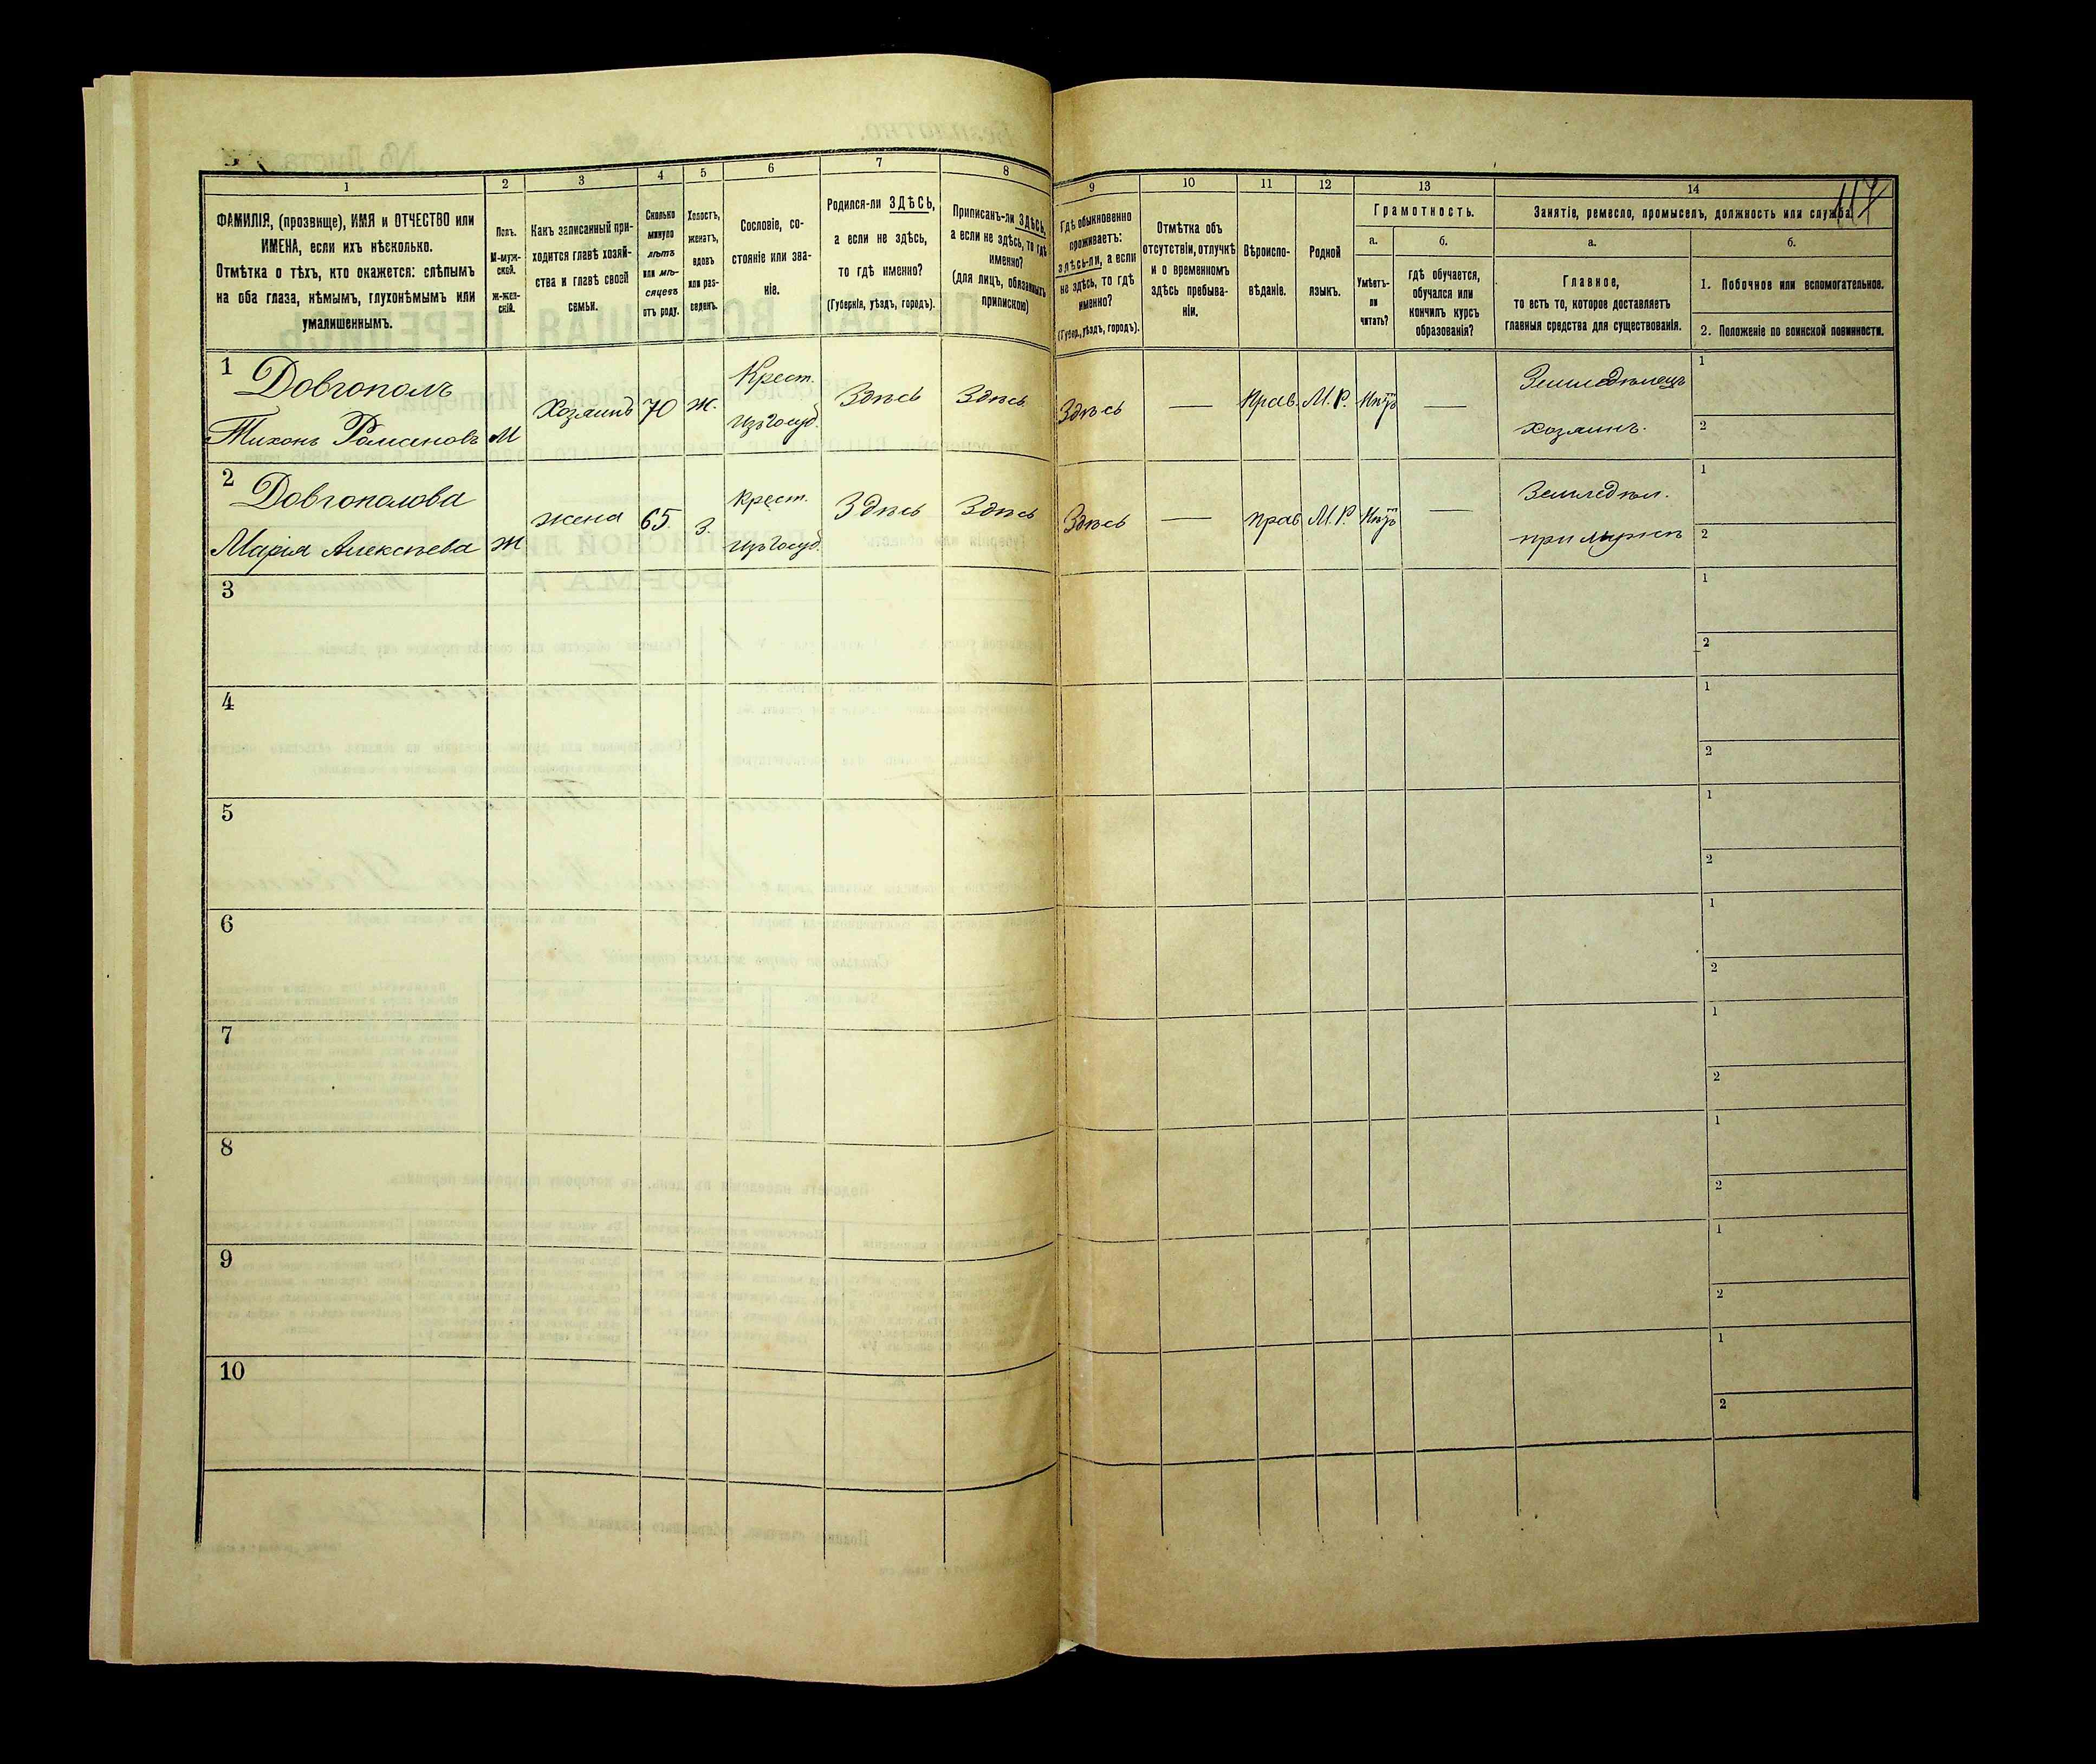 117
1
2
3
4
5
6
7
8
9
10
11
12
13
14
ФАМИЛІЯ, (прозвище), ИМЯ и ОТЧЕСТВО или
ИМЕНА, если ихъ нѣсколько.
Отмѣтка о тѣхъ, кто окажется: слѣпымъ
на оба глаза, нѣмымъ, глухонѣмымъ или
умалишеннымъ.
Полъ.
М-муж-
ской.
Ж-жен-
скій.
Какъ записанный при-
ходится главѣ хозяй-
ства и главѣ своей
семьи.
Сколько
минуло
лѣтъ
или мѣ-
сяцевъ
отъ роду.
Холостъ,
женатъ,
вдовъ
или раз-
веденъ.
Сословіе, со-
стояніе или зва-
ніе.
Родился-ли ЗДѢСЬ,
а если не здѣсь,
то гдѣ именно?
(Губернія, уѣздъ, городъ).
Приписанъ-ли ЗДѢСЬ,
а если не здѣсь, то гдѣ
именно?
(для лицъ, обязанныхъ
припискою)
Гдѣ обыкновенно
проживаетъ:
здѣсь-ли, а если
не здѣсь, то гдѣ
именно?
(Губер., уѣздъ, городъ).
Отмѣтка объ
отсутствіи, отлучкѣ
и о временномъ
здѣсь пребыва-
ніи.
Вѣроиспо-
вѣданіе.
Родной
языкъ.
Грамотность.
а.
Умѣетъ-
ли
читать?
б.
гдѣ обучается,
обучался или
кончилъ курсъ
образованія?
Занятіе, ремесло, промыселъ, должность или служба.
а.
Главное,
то есть то, которое доставляетъ
главныя средства для существованія.
б.
1. Побочное или вспомогательное.
2. Положеніе по воинской повинности.
1
Довгополъ
Тихонъ Романовъ
М
Хозяинъ
70
Ж.
Крест.
изъ Госуд.
Здѣсь
Здѣсь
Здѣсь
—
Прав.
М. Р.
Нѣтъ
—
Земледѣлецъ
хозяинъ.
1
2
2
Довгополова
Марія Алексѣева
Ж
жена
65.
З.
Крест.
изъ Госуд.
Здѣсь
Здѣсь
Здѣсь
—
прав
М. Р.
Нѣтъ
—
Земледѣл.
при мужѣ
1
2
3
1
2
4
1
2
5
1
2
6
1
2
7
1
2
8
1
2
9
1
2
10
1
2